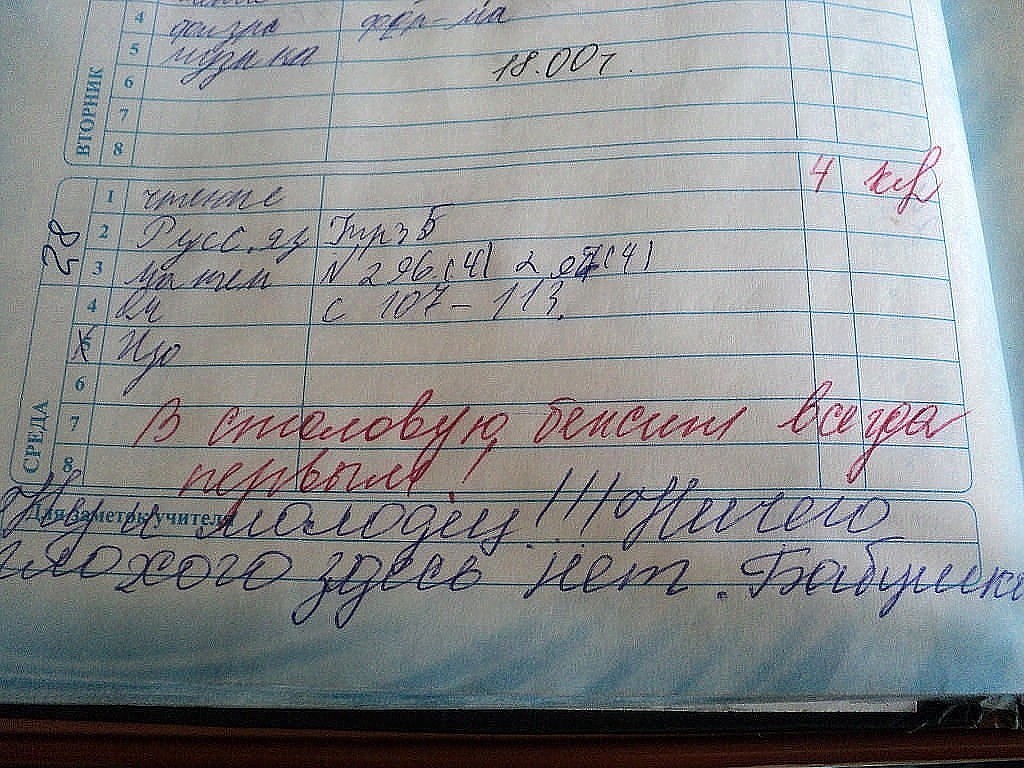 4 физра фор-ма
5 музыка
18.00 г.
6
7
ВТОРНИК
8
1 чтение 4 кв
2 Русс.яз Упр 3 Б
28
3 матем N 296.(4) 297(4)
4 Ан с 107 - 113.
5 Изо
6
7 В столовую бежит всегда
СРЕДА
8 первым!
Для заметок учителя
Ну и молодец!!! Ничего
плохого здесь нет. Бабушка